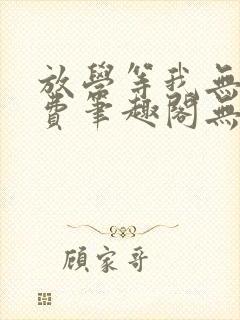 放學等我無
費筆趣閣無
顾家哥